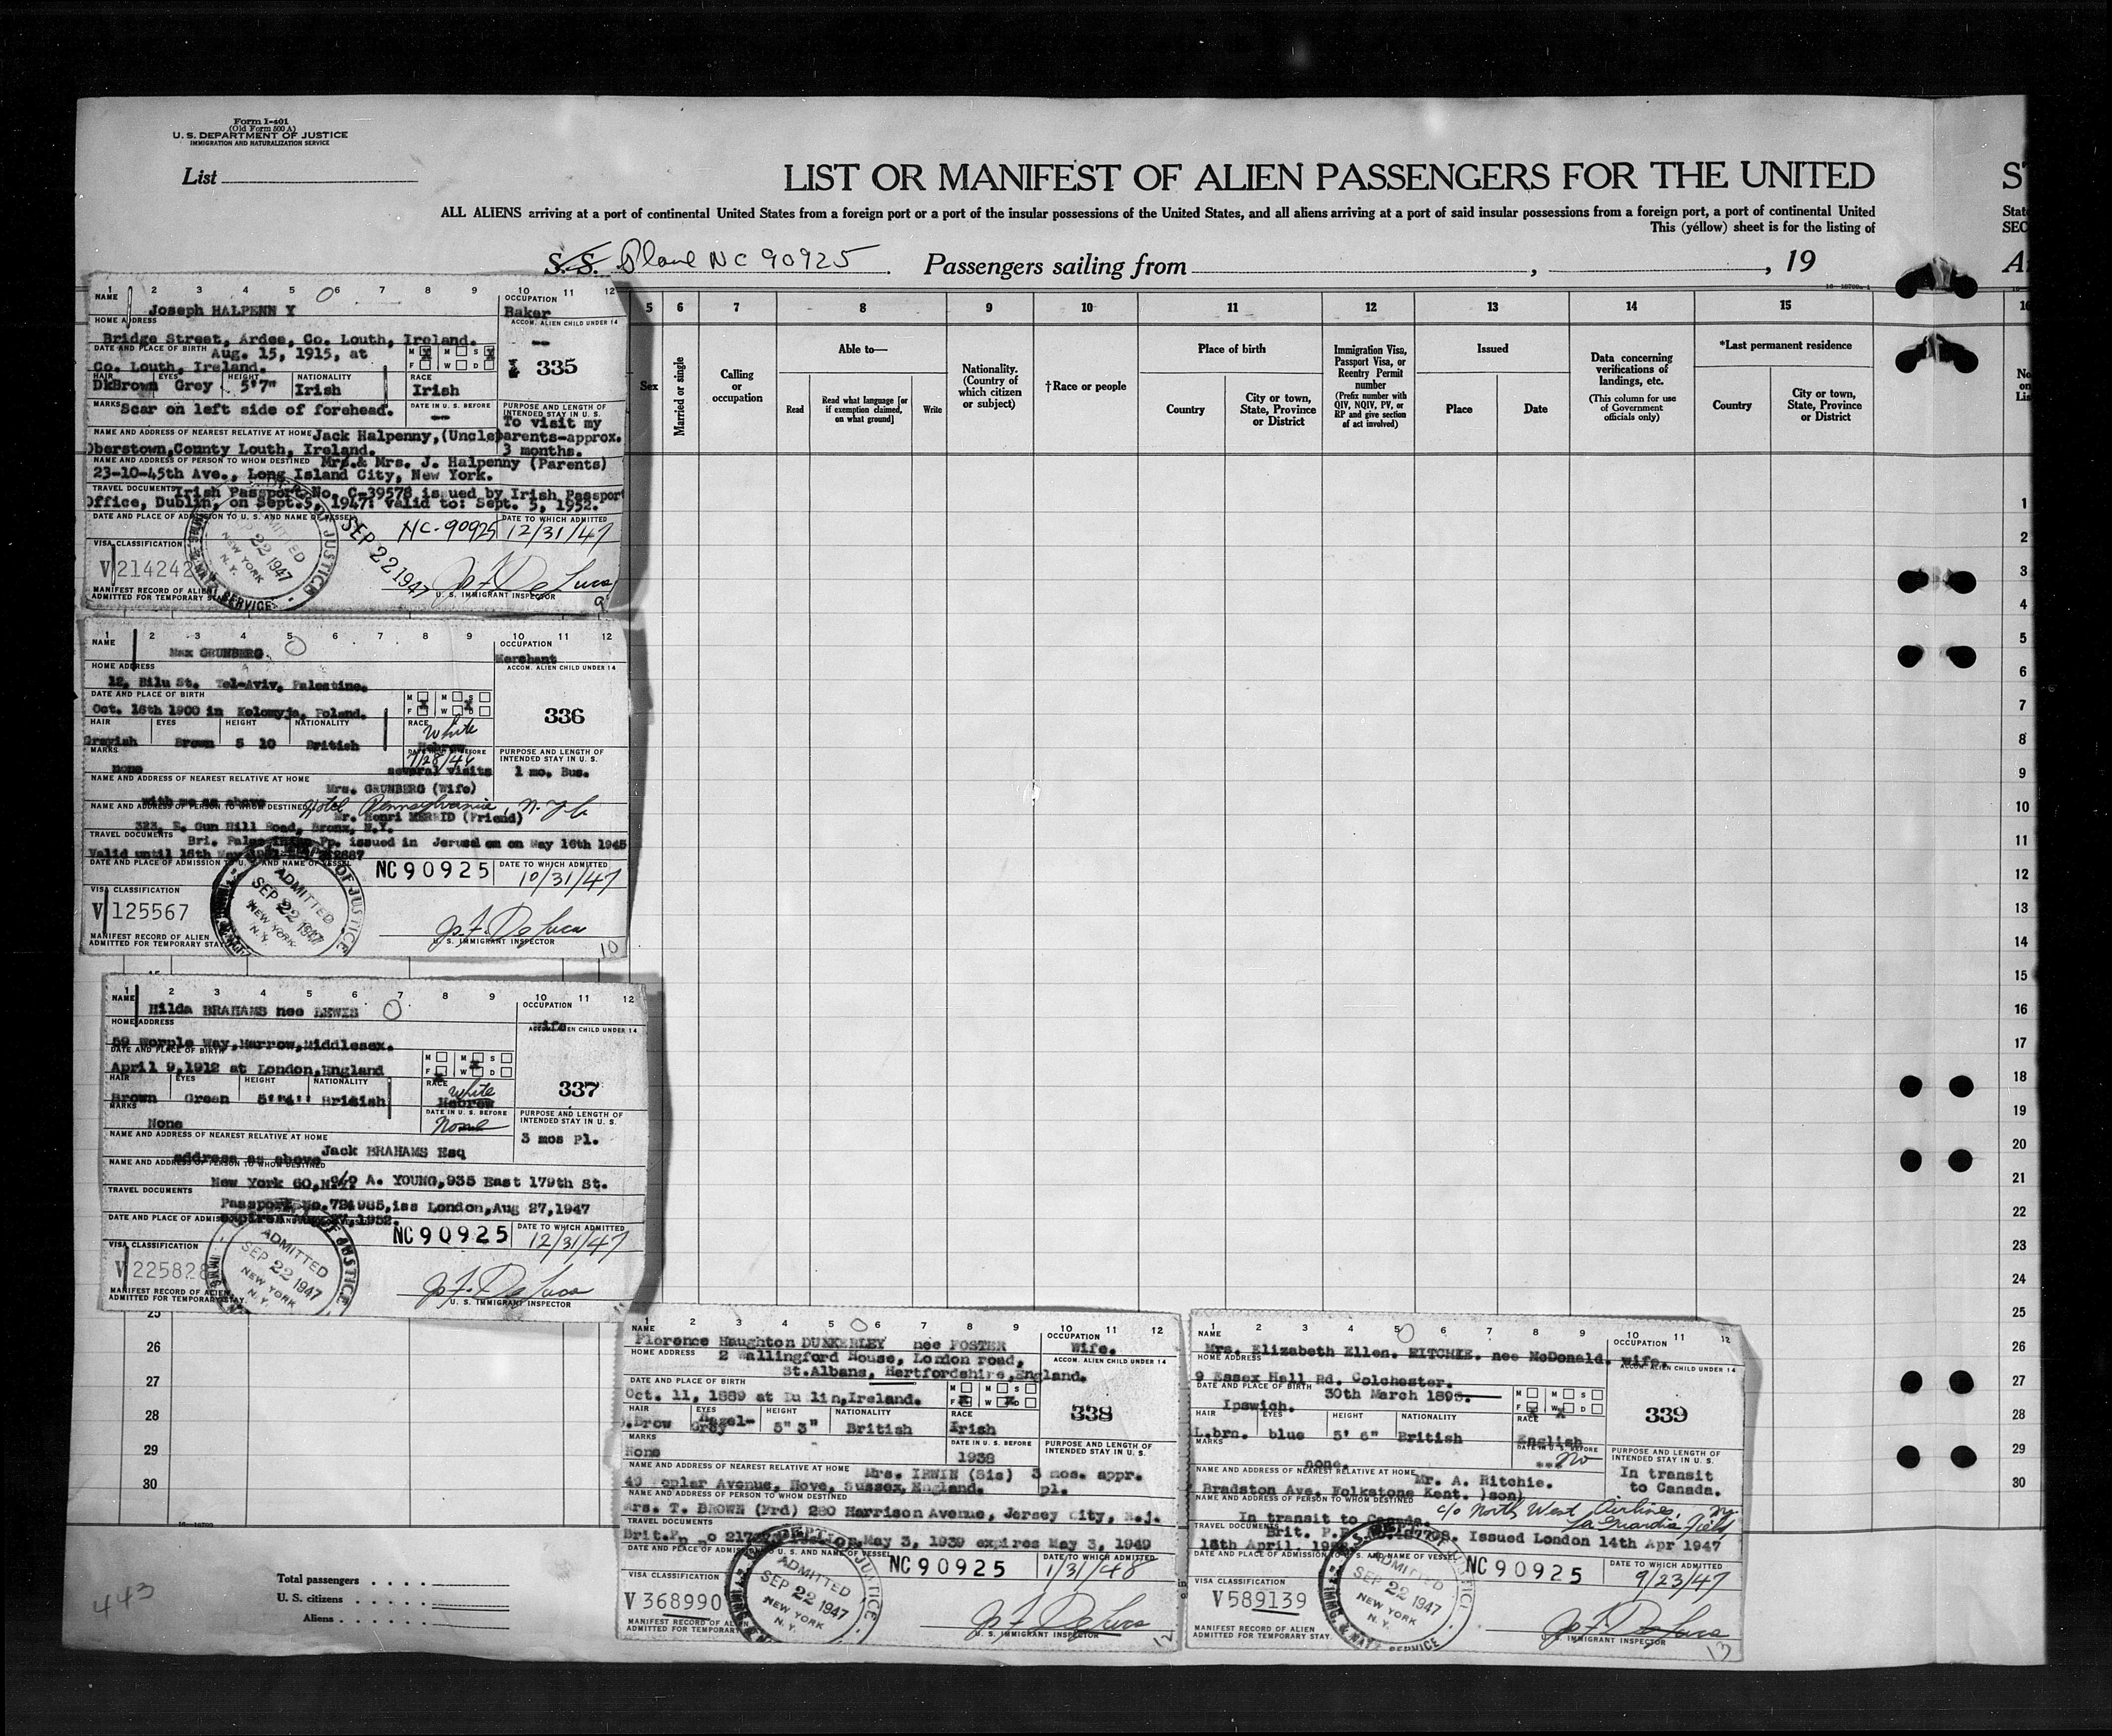 Form I-401
(Old Form 500 A)
U. S. DEPARTMENT OF JUSTICE
IMMIGRATION AND NATURALIZATION SERVICE
List
LIST OR MANIFEST OF ALIEN PASSENGERS FOR THE UNITED
ALL ALIENS arriving at a port of continental United States from a foreign port or a port of the insular possessions of the United States, and all aliens arriving at a port of said insular possessions from a foreign port, a port of continental United
This (yellow) sheet is for the listing of
S. S. Plane NC 90925 Passengers sailing from , , 19
5 6 7 8 9 10 11 12 13 14 15
Sex
Married or single
Calling or occupation
Able to—
Read
Read what language [or if exemption claimed, on what ground]
Write
Nationality. (Country of which citizen or subject)
†Race or people
Place of birth
Country
City or town, State, Province or District
Immigration Visa, Passport Visa, or Reentry Permit number
(Prefix number with QIV, NQIV, PV, or RP and give section of act involved)
Issued
Place
Date
Data concerning verifications of landings, etc.
(This column for use of Government officials only)
*Last permanent residence
Country
City or town, State, Province or District
1 2 3 4 5 6 7 8 9 10 11 12
NAME
Joseph HALPENN Y
OCCUPATION
Baker
HOME ADDRESS
ACCOM. ALIEN CHILD UNDER 14
Bridge Street, Ardee, Co. Louth, Ireland.
DATE AND PLACE OF BIRTH
Aug. 15, 1915, at
Co. Louth, Ireland.
M M S
F W D
335
HAIR EYES HEIGHT NATIONALITY RACE
DkBrown Grey 5'7" Irish Irish
MARKS
Scar on left side of forehead.
DATE IN U. S. BEFORE
PURPOSE AND LENGTH OF INTENDED STAY IN U. S.
To visit my
parents-approx.
3 months.
NAME AND ADDRESS OF NEAREST RELATIVE AT HOME
Jack Halpenny,(Uncle)
Oberstown,County Louth, Ireland.
NAME AND ADDRESS OF PERSON TO WHOM DESTINED
Mr.& Mrs. J. Halpenny (Parents)
23-10-45th Ave., Long Island City, New York.
TRAVEL DOCUMENTS
Irish Passport No. C-39578 issued by Irish Passport
Office, Dublin, on Sept.5, 1947: valid to: Sept. 5, 1952.
DATE AND PLACE OF ADMISSION TO U. S. AND NAME OF VESSEL
DATE TO WHICH ADMITTED
SEP 22 1947
NC-90925
12/31/47
VISA CLASSIFICATION
ADMITTED
22 1947
NEW YORK
N. Y.
Jos F. De Luca
U. S. IMMIGRANT INSPECTOR
MANIFEST RECORD OF ALIEN
ADMITTED FOR TEMPORARY STAY
9
1 2 3 4 5 6 7 8 9 10 11 12
NAME
Max GRUNBERG
OCCUPATION
Merchant
HOME ADDRESS
ACCOM. ALIEN CHILD UNDER 14
12, Bilu St. Tel-Aviv, Palestine.
DATE AND PLACE OF BIRTH
Oct. 16th 1900 in Kolomyja, Poland.
M M S
F W D
336
HAIR EYES HEIGHT NATIONALITY RACE
White
Greyish Brown 5 10 British Hebrew
MARKS
none
several visits
PURPOSE AND LENGTH OF INTENDED STAY IN U. S.
1 mo. Bus.
NAME AND ADDRESS OF NEAREST RELATIVE AT HOME
Mrs. GRUNBERG (Wife)
with me as above
NAME AND ADDRESS OF PERSON TO WHOM DESTINED
Hotel Pennsylvania, N.Y.C.
Mr. Henri (Friend)
323, E. Gun Hill Road, Bronx, N.Y.
TRAVEL DOCUMENTS
Bri. Pp. issued in Jerusalem on May 16th 1945
Valid until 16th May
DATE AND PLACE OF ADMISSION TO U. S. AND NAME OF VESSEL
DATE TO WHICH ADMITTED
NC 90925
10/31/47
VISA CLASSIFICATION
V 125567
ADMITTED
SEP 22 1947
NEW YORK
N. Y.
Jos F. De Luca
U. S. IMMIGRANT INSPECTOR
MANIFEST RECORD OF ALIEN
ADMITTED FOR TEMPORARY STAY
10
1 2 3 4 5 6 7 8 9 10 11 12
NAME
Hilda BRAHAMS nee LEWIS
OCCUPATION
wife
HOME ADDRESS
59 Worple Way,Harrow,Middlesex.
DATE AND PLACE OF BIRTH
April 9,1912 at London,England
M M S
F W D
337
HAIR EYES HEIGHT NATIONALITY RACE
White
Brown Green 5''4'' British Hebrew
MARKS
None
DATE IN U. S. BEFORE
None
PURPOSE AND LENGTH OF INTENDED STAY IN U. S.
3 mos Pl.
NAME AND ADDRESS OF NEAREST RELATIVE AT HOME
Jack BRAHAMS Esq
address as above
NAME AND ADDRESS OF PERSON TO WHOM DESTINED
New York 60,N.Y. c/o A. YOUNG,935 East 179th St.
TRAVEL DOCUMENTS
Passport No.724985,iss London,Aug 27,1947
DATE AND PLACE OF ADMISSION
DATE TO WHICH ADMITTED
NC 90925
12/31/47
VISA CLASSIFICATION
V 225828
ADMITTED
SEP 22 1947
NEW YORK
N. Y.
Jos F. De Luca
U. S. IMMIGRANT INSPECTOR
MANIFEST RECORD OF ALIEN
ADMITTED FOR TEMPORARY STAY
1 2 3 4 5 6 7 8 9 10 11 12
NAME
Florence Haughton DUNKERLEY nee FOSTER
OCCUPATION
Wife.
HOME ADDRESS
2 Wallingford House, London road,
St.Albans, Hertfordshire,England.
ACCOM. ALIEN CHILD UNDER 14
DATE AND PLACE OF BIRTH
Oct. 11, 1889 at Du lin,Ireland.
M M S
F W D
338
HAIR EYES HEIGHT NATIONALITY RACE
Brow Hazel-Grey 5" 3" British Irish
MARKS
None
DATE IN U. S. BEFORE
1938
PURPOSE AND LENGTH OF INTENDED STAY IN U. S.
3 mos. appr.
pl.
NAME AND ADDRESS OF NEAREST RELATIVE AT HOME
Mrs. IRWIN (Sis)
49 Poplar Avenue, Hove, Sussex,England.
NAME AND ADDRESS OF PERSON TO WHOM DESTINED
Mrs. T. BROWN (Frd) 280 Harrison Avenue, Jersey City, N.j.
TRAVEL DOCUMENTS
May 3, 1939 expires May 3, 1949
DATE AND PLACE OF ADMISSION TO U. S. AND NAME OF VESSEL
DATE TO WHICH ADMITTED
NC 90925
1/31/48
VISA CLASSIFICATION
V 368990
ADMITTED
SEP 22 1947
NEW YORK
N. Y.
Jos F. De Luca
U. S. IMMIGRANT INSPECTOR
MANIFEST RECORD OF ALIEN
ADMITTED FOR TEMPORARY
12
1 2 3 4 5 6 7 8 9 10 11 12
NAME
Mrs. Elizabeth Ellen. RITCHIE. nee McDonald. wife.
OCCUPATION
HOME ADDRESS
9 Essex Hall Rd. Colchester.
DATE AND PLACE OF BIRTH
30th March
Ipswich.
M M S
F W D
339
HAIR EYES HEIGHT NATIONALITY RACE
L.brn. blue 5' 6" British English
MARKS
none.
No
PURPOSE AND LENGTH OF INTENDED STAY IN U. S.
In transit
to Canada.
NAME AND ADDRESS OF NEAREST RELATIVE AT HOME
Mr. A. Ritchie.
Bradston Ave. Folkstone Kent. )son)
NAME AND ADDRESS OF PERSON TO WHOM DESTINED
In transit to Canada. c/o North West Airlines, NY
La Guardia Field
TRAVEL DOCUMENTS
Brit. P.P. Issued London 14th Apr 1947
DATE AND PLACE OF ADMISSION TO U. S. AND NAME OF VESSEL
DATE TO WHICH ADMITTED
NC 90925
9/23/47
VISA CLASSIFICATION
V 589139
ADMITTED
SEP 22 1947
NEW YORK
N. Y.
Jos F. De Luca
U. S. IMMIGRANT INSPECTOR
MANIFEST RECORD OF ALIEN
ADMITTED FOR TEMPORARY STAY.
13
1
2
3
4
5
6
7
8
9
10
11
12
13
14
15
16
17
18
19
20
21
22
23
24
25
26
27
28
29
30
Total passengers
U. S. citizens
Aliens
443